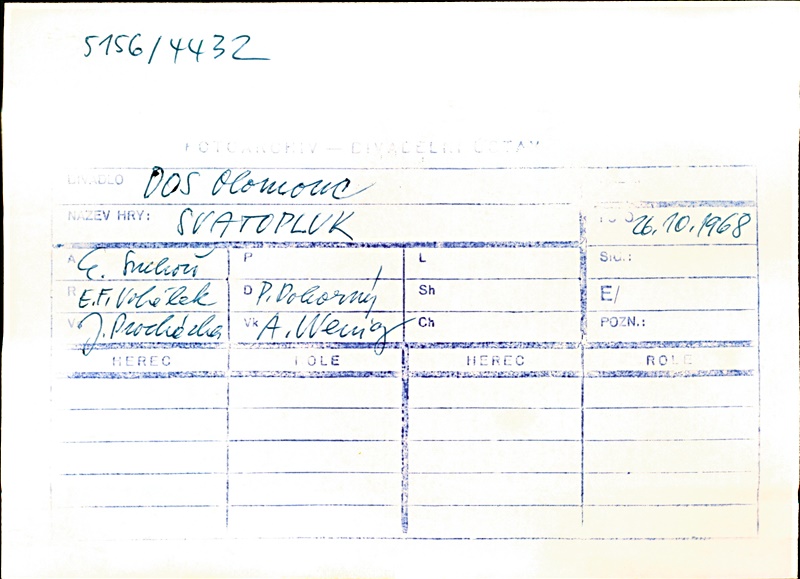 5156/4432
FOTOARCHIV — DIVADELNÍ ÚSTAV
DIVADLO DOS Olomouc
NÁZEV HRY: SVATOPLUK
26.10.1968
A E. Suchoň P L SIG.:
R E.F. Vokálek D P. Pokorný Sh E/
V J. Procházka Vk A. Wenig Ch POZN.:
HEREC ROLE HEREC ROLE